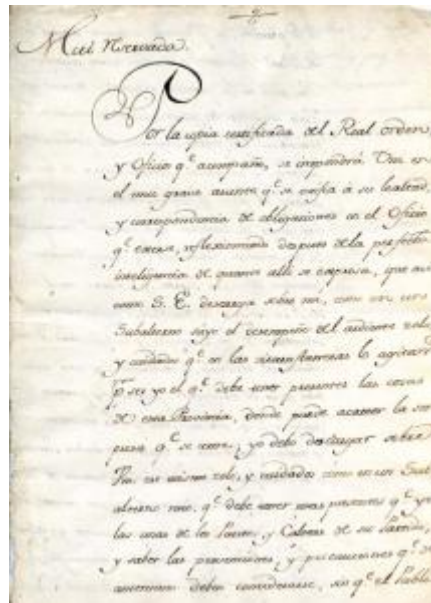 Muy Reservada.
Por la copia certificada del Real orden,
y Oficio q.e acompaño, se impondrá Vm. en
el muy grave asunto q.e se confia á su lealtad,
y correspondencia de obligaciones en el Oficio
q.e exerce, reflexionando despues de la perfecta
inteligencia de quanto alli se expresa, que asi
como S. E. descarga sobre mi, como un
Subalterno suyo el desempeño del ardiente zelo,
y cuidados q.e en las circunstancias lo agitan
p.r ser yo el q.e debe tener presentes las cosas
de esta Provincia, donde puede acaecer la
q.e se teme, yo debo descargar sobre
Vm. ese mismo zelo, y cuidados como en un Sub
alterno mio, q.e debe tener mas presentes q.e yo
las cosas de los Pueblos, y Cabezas de su Partido,
y saber las prevenciones, y precauciones q.e de
antemano deben considerarse, sin q.e el Publi